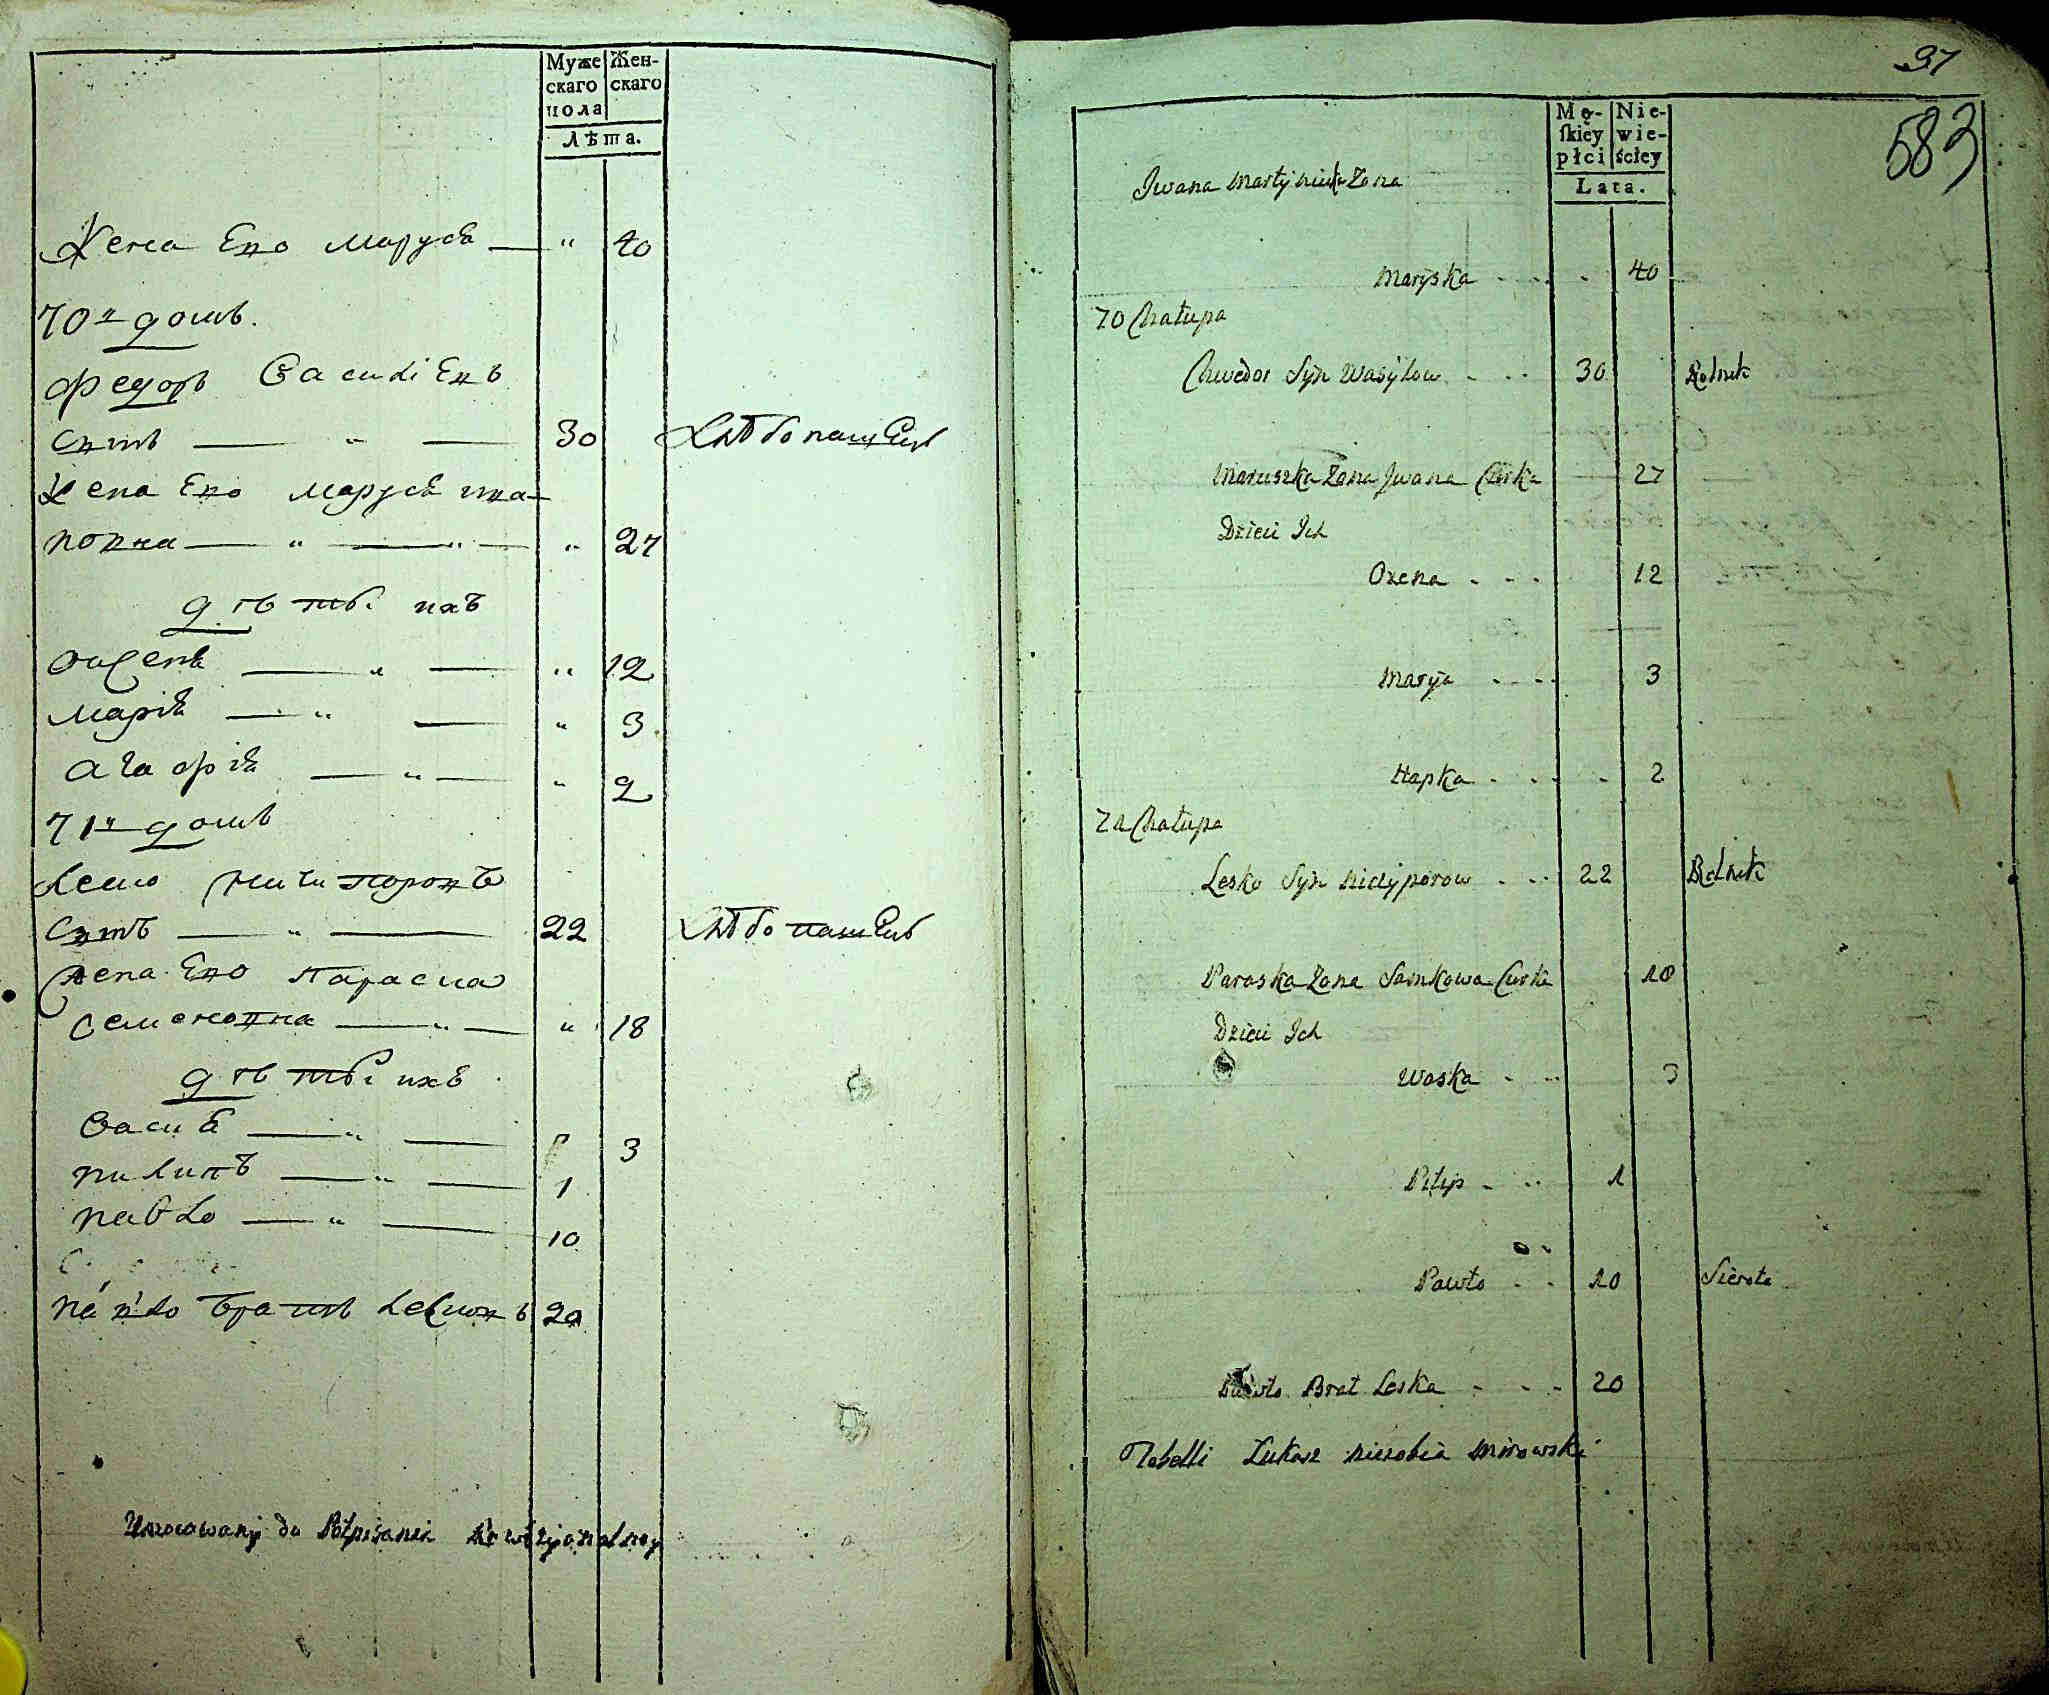 Муже Жен-
скаго скаго
пола
Лѣта.
Жена Его Маруся — " 40
70й домъ.
Федоръ Василіевъ
сынъ — " — 30 Хлѣбопашецъ
Жена Его Маруся Ива-
новна — " — " — " 27
дѣти ихъ
Оксеня — " — " 12
Марія — " — " 3
Агафія — " — " 2
71й домъ
Леско Ничипоровъ
сынъ — " — 22 Хлѣбопашецъ
Жена Его Параска
Семеновна — " — " 18
дѣти ихъ
Васка — " — 3
Пилипъ — " — 1
Павло — " — 10
Павло братъ Лесковъ 20
Umocowany do Potpisania Rewizyonalney
37
583
Mę- Nie-
ſkiey wie-
płci ściey
Lata.
Jwana Martyniuka Zona
Maryska - - - - 40
70 Chałupa
Chwedor Syn Wasylow - - - 30 Rolnik
Maruszka Zona Jwana Curka 27
Dzieci Ich
Oxena - - - 12
Marya - - - - 3
Hapka - - - - 2
71 Chałupa
Lesko Syn Niczyporow - - - 22 Rolnik
Paraska Zona Samkowa Curka 18
Dzieci Ich
Waska - - - 3
Pilip - - - 1
Pawło - - 10 Sierota
Pawło Brat Leska - - - 20
Tabelli Łukasz Mirowski